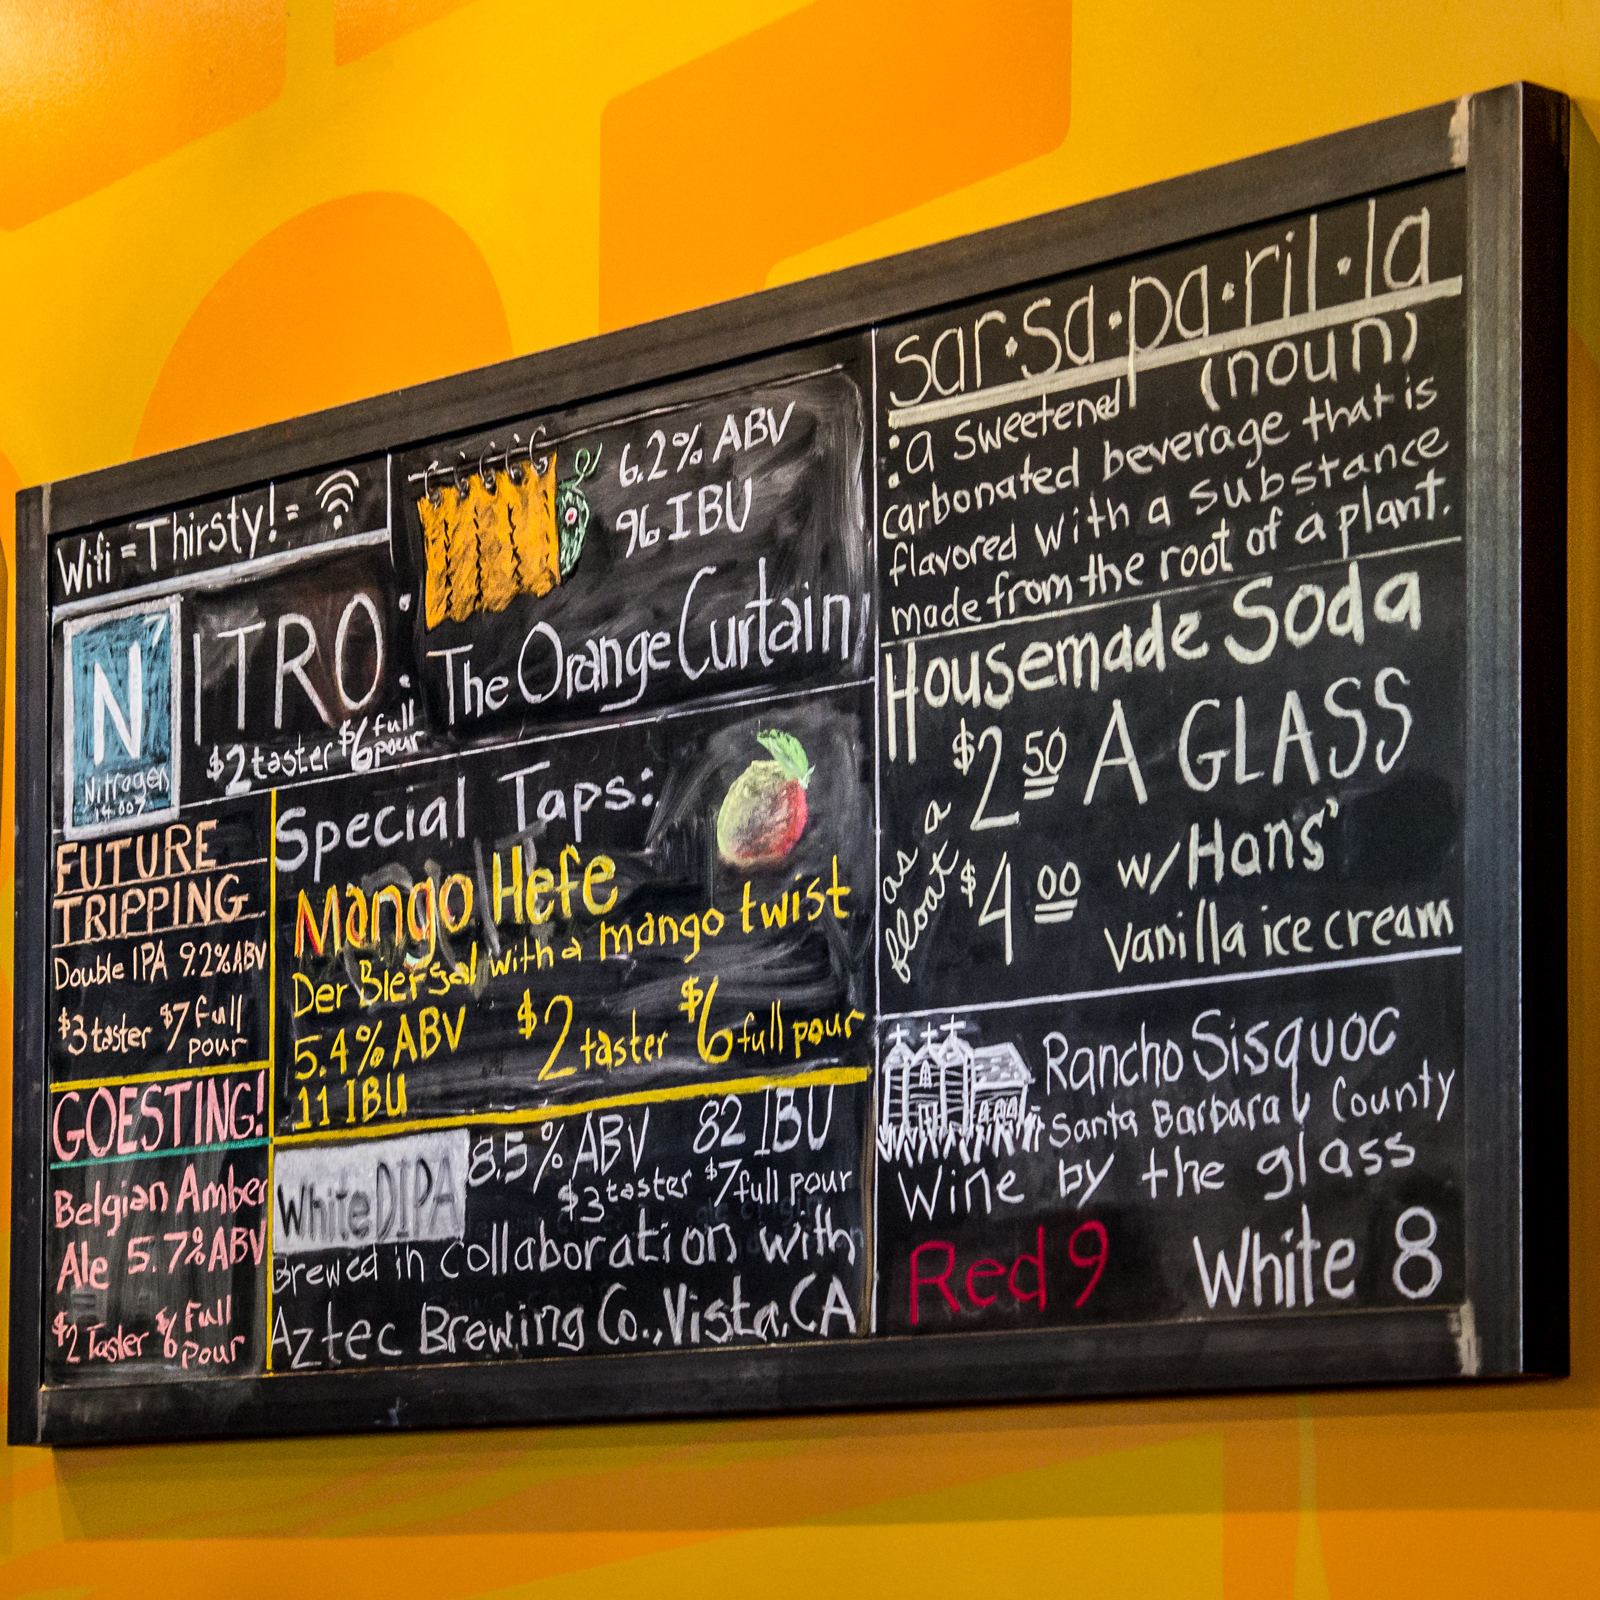 Wifi = Thirsty! =
N
Nitrogen
14.007
ITRO:
$2 taster $6 full pour
6.2% ABV
96 IBU
The Orange Curtain
FUTURE
TRIPPING
Double IPA 9.2% ABV
$3 taster $7 full pour
GOESTING!
Belgian Amber
Ale 5.7% ABV
$2 Taster $6 Full pour
Special Taps:
Mango Hefe
Der Biersal with a mango twist
5.4% ABV $2 taster $6 full pour
11 IBU
White DIPA 8.5% ABV 82 IBU
$3 taster $7 full pour
Brewed in collaboration with
Aztec Brewing Co., Vista, CA
sar·sa·pa·ril·la
(noun)
: a sweetened
carbonated beverage that is
flavored with a substance
made from the root of a plant.
Housemade Soda
$2 50 A GLASS
as a float $4 00 w/Hans'
Vanilla ice cream
Rancho Sisquoc
Santa Barbara County
Wine by the glass
Red 9 White 8